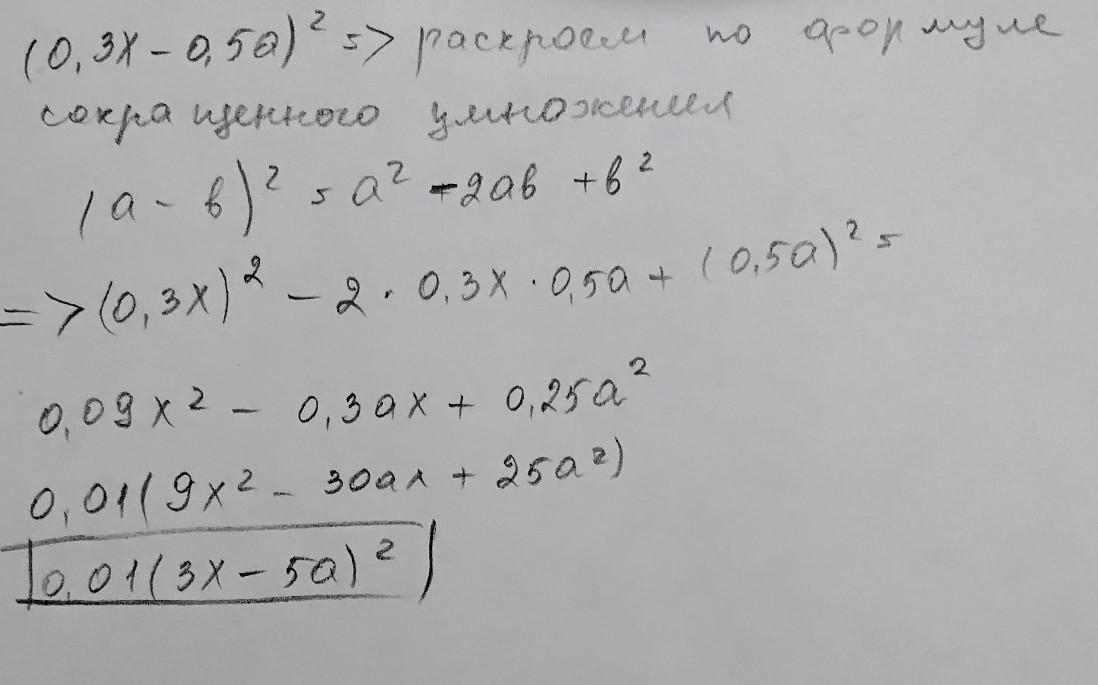 (0,3x - 0,5a)² => раскроем по формуле
сокращенного умножения
(a - b)² = a² - 2ab + b²
=> (0,3x)² - 2 · 0,3x · 0,5a + (0,5a)² =
0,09x² - 0,3ax + 0,25a²
0,01(9x² - 30ax + 25a²)
0,01(3x - 5a)²